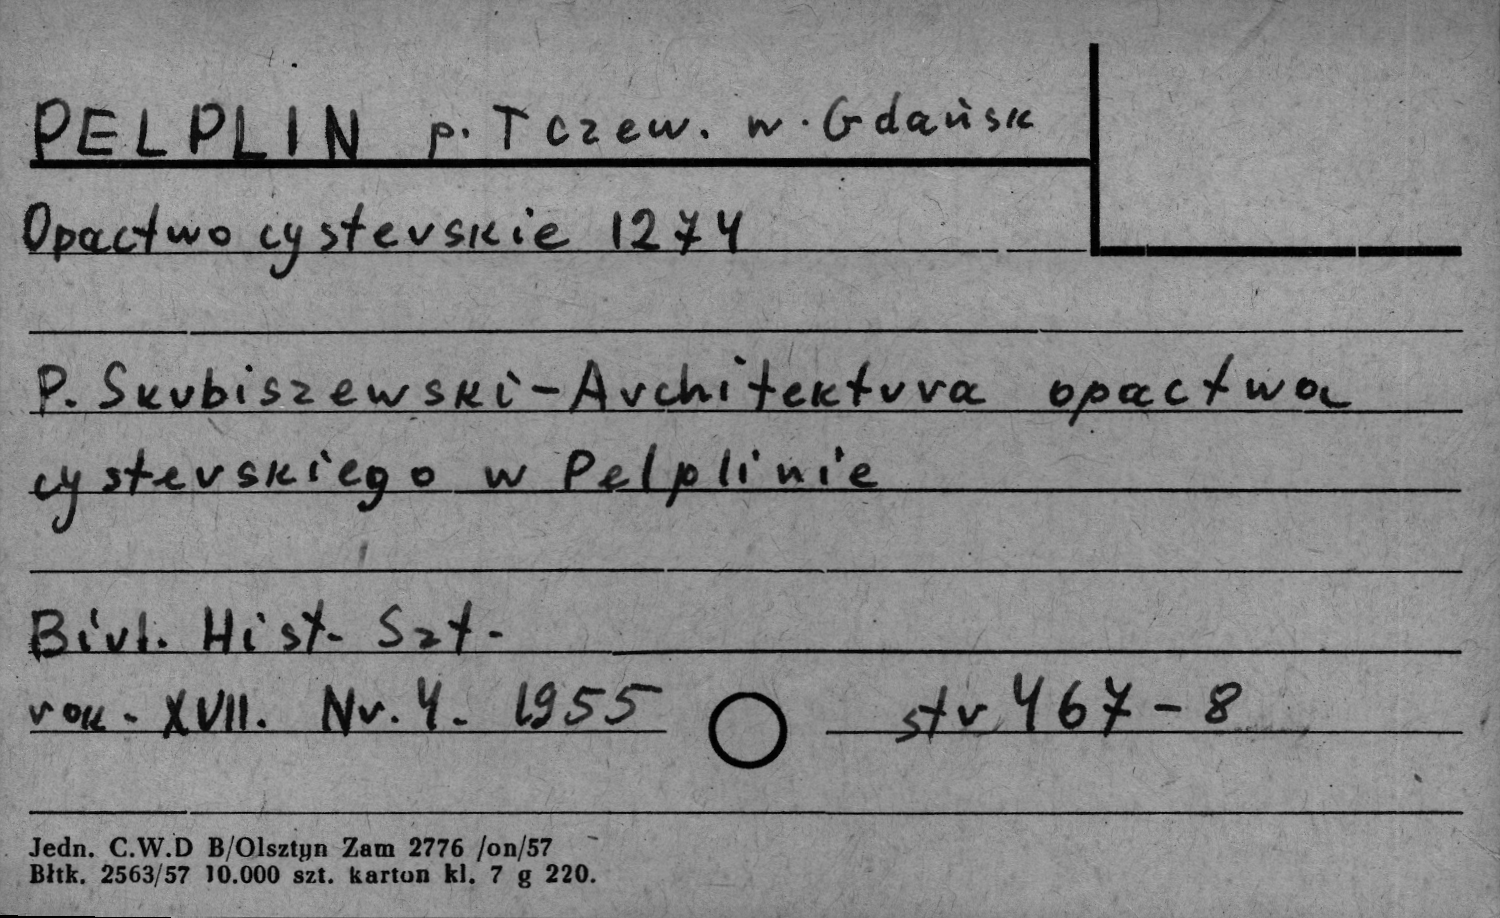 PELPLIN p. Tczew. w. Gdańsk
Opactwo cysterskie 1274
P. Skubiszewski - Architektura opactwa
cysterskiego w Pelplinie
Biul. Hist. Szt.
rok. XVII. Nr. 4. 1955 str 467-8
Jedn. C.W.D B/Olsztyn Zam 2776 /on/57
Błtk. 2563/57 10.000 szt. karton kl. 7 g 220.